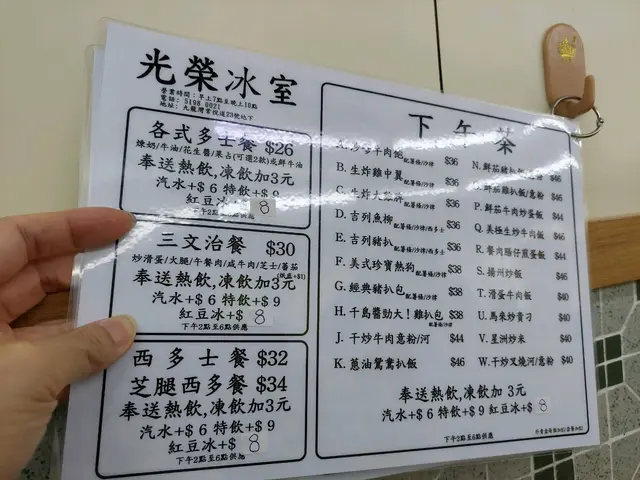 光榮冰室
營業時間：早上7點至晚上10點
電話：5198 0021
地址：九龍灣常悅道23號地下
各式多士餐 $26
煉奶/牛油/花生醬/果占(可選2款)或鮮牛油
奉送熱飲,凍飲加3元
汽水+$6 特飲+$9
紅豆冰+$ 8
下午2點至6點供應
三文治餐 $30
炒滑蛋/火腿/午餐肉/咸牛肉/芝士/蕃茄
奉送熱飲,凍飲加3元
汽水+$6 特飲+$9
紅豆冰+$ 8
下午2點至6點供應
西多士餐 $32
芝腿西多士餐 $34
奉送熱飲,凍飲加3元
汽水+$6 特飲+$9
紅豆冰+$ 8
下午2點至6點供應
下午茶
$36
B. 生炸雞中翼 配薯條/沙律 $36
C. 生炸大雞髀 $36
D. 吉列魚柳 配薯條/沙律/西多士 $36
E. 吉列豬扒 配薯條/沙律/西多士 $36
F. 美式珍寶熱狗 配薯條/沙律 $38
G. 經典豬扒包 配薯條/沙律 $38
H. 千島醬勁大!雞扒包 配薯條/沙律 $38
J. 干炒牛肉意粉/河 $44
K. 蔥油鴛鴦扒飯 $46
N. 鮮茄豬扒
鮮茄雞扒飯/意粉 $46
P. 鮮茄牛肉炒蛋飯 $44
Q. 美極生炒牛肉飯 $46
R. 餐肉腸仔煎蛋飯 $44
S. 揚州炒飯 $46
T. 滑蛋牛肉飯 $40
U. 馬來炒貴刁 $40
V. 星洲炒米 $40
W. 干炒叉燒河/意粉 $40
奉送熱飲,凍飲加3元
汽水+$6 特飲+$9 紅豆冰+$ 8
下午2點至6點供應